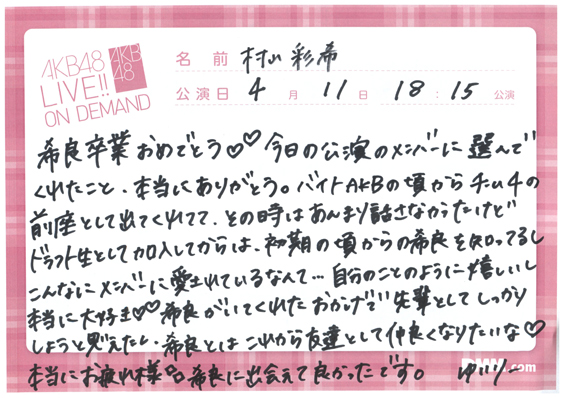 AKB48
LIVE!!
ON DEMAND
AKB
48
名前 村山彩希
公演日 4月11日 18:15公演
希良卒業おめでとう♡♡今日の公演のメンバーに選んで
くれたこと、本当にありがとう。バイトAKBの頃からチーム4の
前座として出てくれてて、その時はあんまり話さなかったけど
ドラフト生として加入してからは、初期の頃からの希良を知ってるし
こんなにメンバーに愛されているなんて…自分のことのように嬉しいし
本当に大好き♡♡希良がいてくれたおかげで先輩としてしっかり
しようと思えたし、希良とはこれから友達として仲良くなりたいな♡
本当にお疲れ様。希良に出会えて良かったです。 ゆいりー
DMM.com